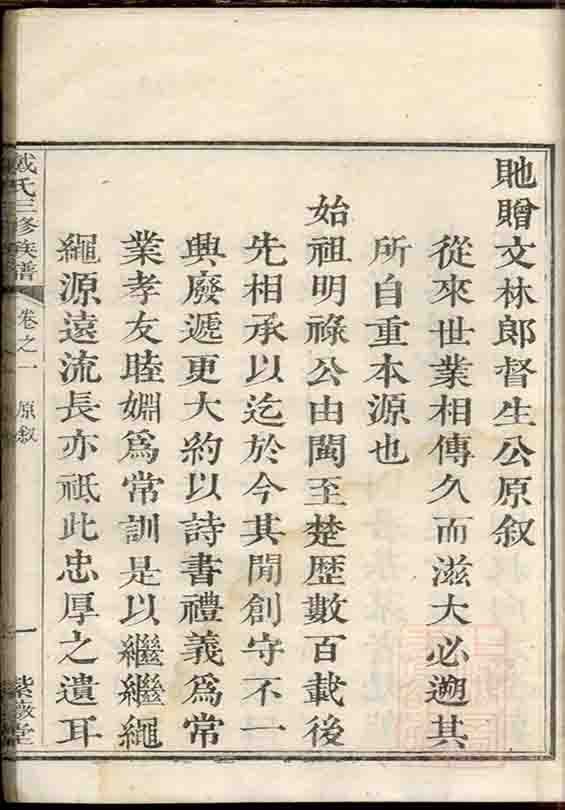 貤贈文林郎督生公原叙
從來世業相傳久而滋大必遡其
所自重本源也
始祖明祿公由閩至楚歴數百載後
先相承以迄於今其閒創守不一
興廢遞更大約以詩書禮義爲常
業孝友睦婣爲常訓是以繼繼繩
繩源遠流長亦祇此忠厚之遺耳
戴氏三修族譜 卷之一 原叙 一 紫薇堂